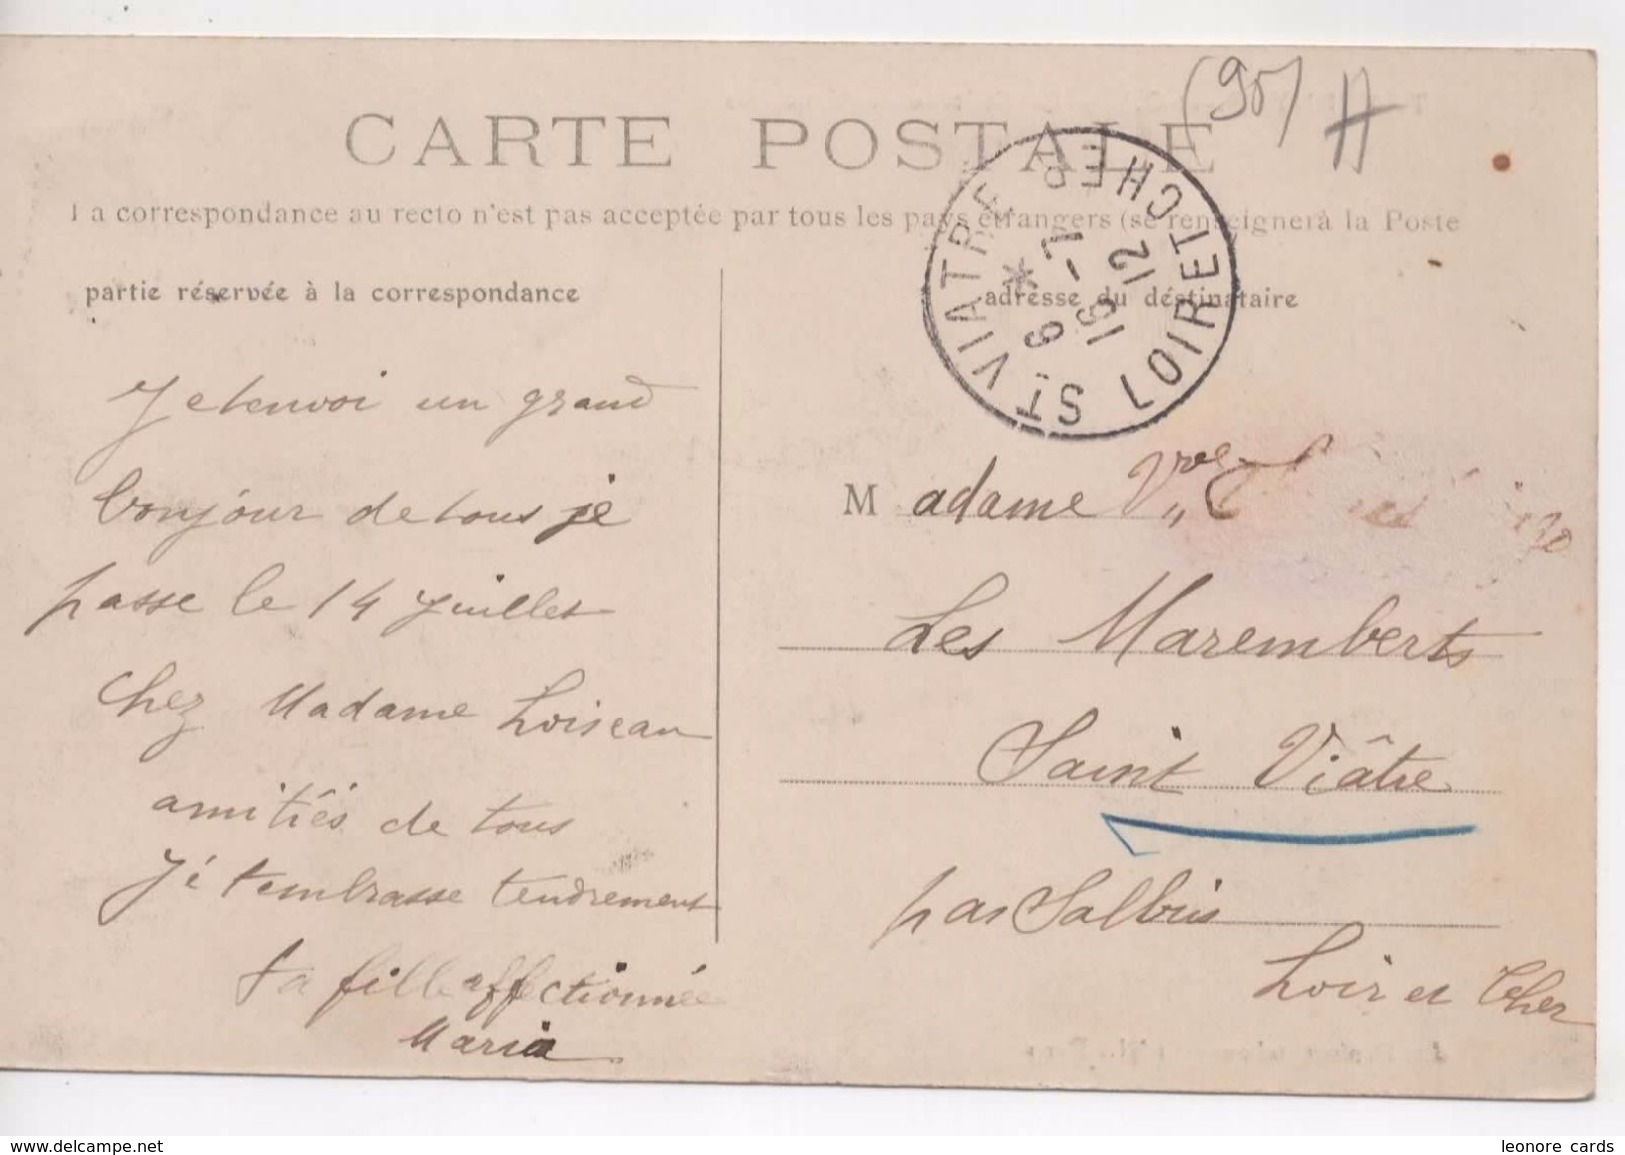 (95) H
CARTE POSTALE
La correspondance au recto n'est pas acceptée par tous les pays étrangers (se renseigner à la Poste
partie réservée à la correspondance
adresse du destinataire
ST VIATRE LOIR ET CHER
* 9 16 -7 12
Je tenvoi un grand
bonjour de tous je
passe le 14 juillet
chez Madame Loiseau
amitiés de tous
Je t'embrasse tendrement
ta fille affectionnée
Maria
Madame Vve
Les Maremberts
Saint Viâtre
par Salbris
Loir et Cher
leonore cards
www.delcampe.net